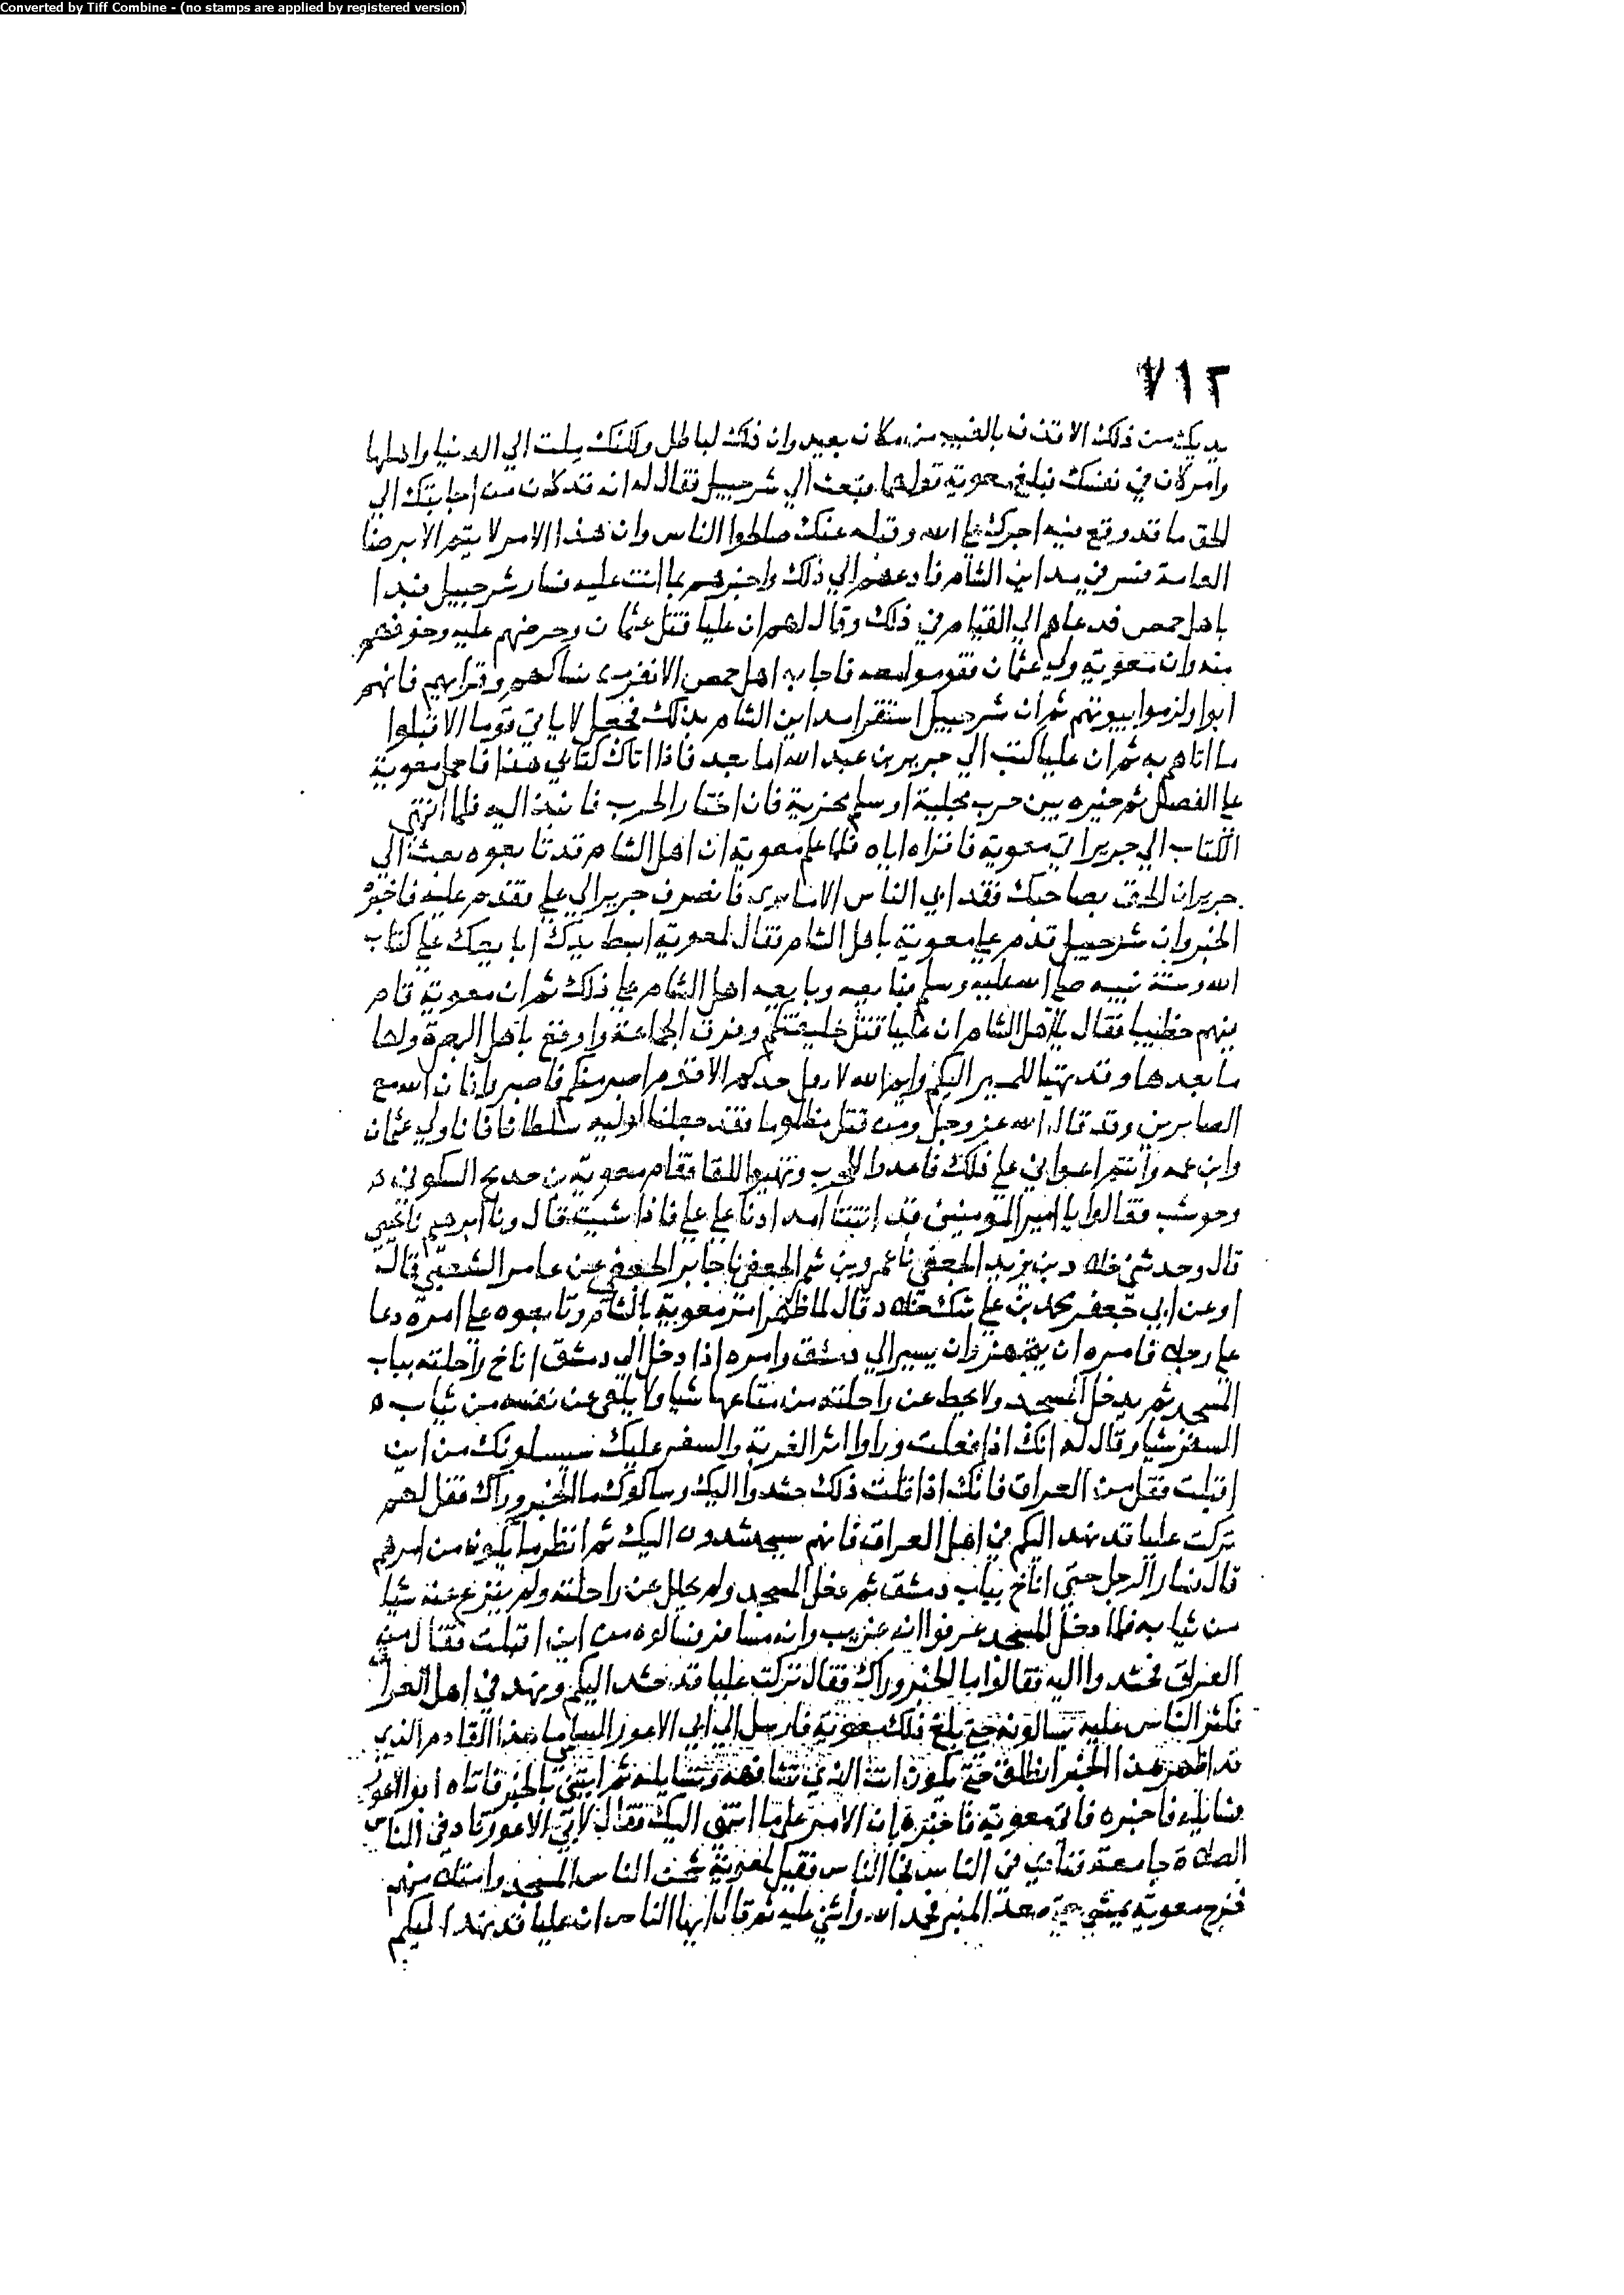 Converted by Tiff Combine - (no stamps are applied by registered version)
٧١٢
يديك من ذلك الا تقذف بالغيب من مكان بعيد وان ذلك لباطل ولكنك ملت الي الدنيا واهلها
وامر كان في نفسك فبلغ معوية قولهما فبعث الي شرحبيل فقال له انه قد كان من اجابتك الي
الحق ما قد وقع فيه اجرك علي الله وقبله عنك صلحوا الناس وان هذا الامر لا يتم الا برضا
العامة فسر في مداين الشام فادعهم الي ذلك واخبرهم بما انت عليه فسار شرحبيل فبدا
باهل حمص فدعاهم الي القيام في ذلك وقال لهم ان عليا قتل عثمان وحرضهم عليه وخوفهم
منه وان معوية ولي عثمان فقوموا معه فاجابه اهل حمص الا نفر من نساكهم وقرايهم فانهم
ابوا ولزموا بيوتهم ثم ان شرحبيل استقرا مداين الشام بذلك فجعل لا ياتي قوما الا قبلوا
ما اتاهم به ثم ان عليا كتب الي جرير بن عبد الله اما بعد فاذا اتاك كتابي هذا فاحمل معوية
علي الفصل ثم خيره بين حرب مجلية او سلم مخزية فان اختار الحرب فانبذ اليه فلما انتهي
الكتاب الي جرير اتي معوية فاقراه اياه فلما علم معوية ان اهل الشام قد تابعوه بعث الي
جرير ان الحق بصاحبك فقد ابي الناس الا ما تري فانصرف جرير الي علي فقدم عليه فاخبره
الخبر وان شرحبيل قدم علي معوية باهل الشام فقال لمعوية ابسط يدك ابايعك علي كتاب
الله وسنة نبيه صلي الله عليه وسلم فبايعه وبايعه اهل الشام علي ذلك ثم ان معوية قام
فيهم خطيبا فقال يا اهل الشام ان عليا قتل خليفتكم وفرق الجماعة واوقع باهل البصرة ولها
ما بعدها وقد تهيا للمسير اليكم وايم الله لا يفل حدكم الا قوم اصبر منكم فاصبروا فان الله مع
الصابرين وقد قال الله عز وجل ومن قتل مظلوما فقد جعلنا لوليه سلطانا فانا ولي عثمان
وابن عمه وانتم اعواني علي ذلك فاعدوا للحرب وتهيوا للقا فقام معوية بن حديج السكوني و
وحوشب فقالوا يا امير المومنين قد اتتنا امدادنا علي علي فاذا شيت قال ونا ابرهيم نا يحيي
قال وحدثني خلاد بن يزيد الجعفي نا عمرو بن شمر الجعفي نا جابر الجعفي عن عامر الشعبي قال
او عن ابي جعفر محمد بن علي شك خلاد قال لما ظهر امر معوية بالشام وتابعوه علي امره دعا
علي رجلا فامره ان يتجهز وان يسير الي دمشق وامره اذا دخل الي دمشق اناخ راحلته بباب
المسجد ثم يدخل المسجد ولا يحط عن راحلته من متاعها شيا ولا يلقي عن نفسه من ثيابه
السفر شيا وقال له انك اذا فعلت وراوا اثر الغربة والسفر عليك سيسلونك من اين
اقبلت فقل من العراق فانك اذا قلت ذلك حشدوا اليك وسالوك ما الخبر وراك فقل لهم
تركت عليا قد نهد اليكم في اهل العراق فانهم سيحشدون اليك ثم انظر ما يكون من امرهم
قال فسار الرجل حتي اناخ بباب دمشق ثم دخل المسجد ولم يحلل عن راحلته ولم ينزع عنه شيا
من ثيابه فلما دخل المسجد عرفوا انه غريب وانه مسافر فسالوه من اين اقبلت فقال من
العراق فحشدوا اليه فقالوا ما الخبر وراك فقال تركت عليا قد حشد اليكم ونهد في اهل العراق
فكثر الناس عليه يسالونه حتي بلغ ذلك معوية فارسل الي ابي الاعور السلمي ما هذا القادم الذي
قد اظهر هذا الخبر انطلق حتي تكون انت الذي تشافهه وتسايله ثم ايتني بالخبر فاتاه ابو الاعور
فسايله فاخبره فاتي معوية فاخبره بان الامر علي ما انتهي اليك فقال لابي الاعور ناد في الناس
الصلاة جامعة فنادي في الناس فجا الناس فقيل لمعوية شحن الناس المسجد وامتلا منهم
فخرج معوية يمشي حتي صعد المنبر فحمد الله واثني عليه ثم قال ايها الناس ان عليا قد نهد اليكم